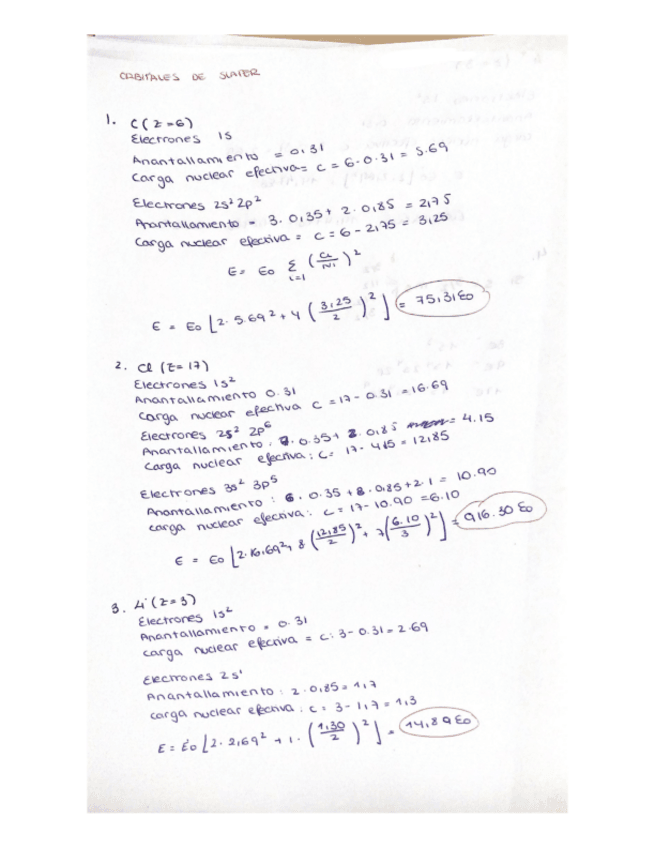 ORBITALES DE SLATER
1. C (Z=6)
Electrones 1s
Apantallamiento = 0.31
Carga nuclear efectiva = C = 6 - 0.31 = 5.69
Electrones 2s² 2p²
Apantallamiento = 3. 0,35 + 2. 0,85 = 2,75
Carga nuclear efectiva = C = 6 - 2,75 = 3,25
E = E0 Σ i=1 (Ci/Ni)²
E = E0 [2. 5.69² + 4 (3,25/2)²] = 75,31 E0
2. Cl (Z=17)
Electrones 1s²
Apantallamiento 0.31
Carga nuclear efectiva C = 17 - 0.31 = 16.69
Electrones 2s² 2p⁶
Apantallamiento: 7. 0.35 + 2. 0,85 = 4.15
Carga nuclear efectiva: C = 17 - 4.15 = 12,85
Electrones 3s² 3p⁵
Apantallamiento: 6. 0.35 + 8. 0,85 + 2.1 = 10.90
Carga nuclear efectiva: C = 17 - 10.90 = 6.10
E = E0 [2. 16,69² + 8 (12,85/2)² + 7 (6.10/3)²] = 916.30 E0
3. Li (Z=3)
Electrones 1s²
Apantallamiento = 0.31
Carga nuclear efectiva = C: 3 - 0.31 = 2.69
Electrones 2s¹
Apantallamiento: 2. 0,85 = 1,7
Carga nuclear efectiva: C = 3 - 1,7 = 1,3
E = E0 [2. 2,69² + 1. (1,30/2)²] = 14,89 E0